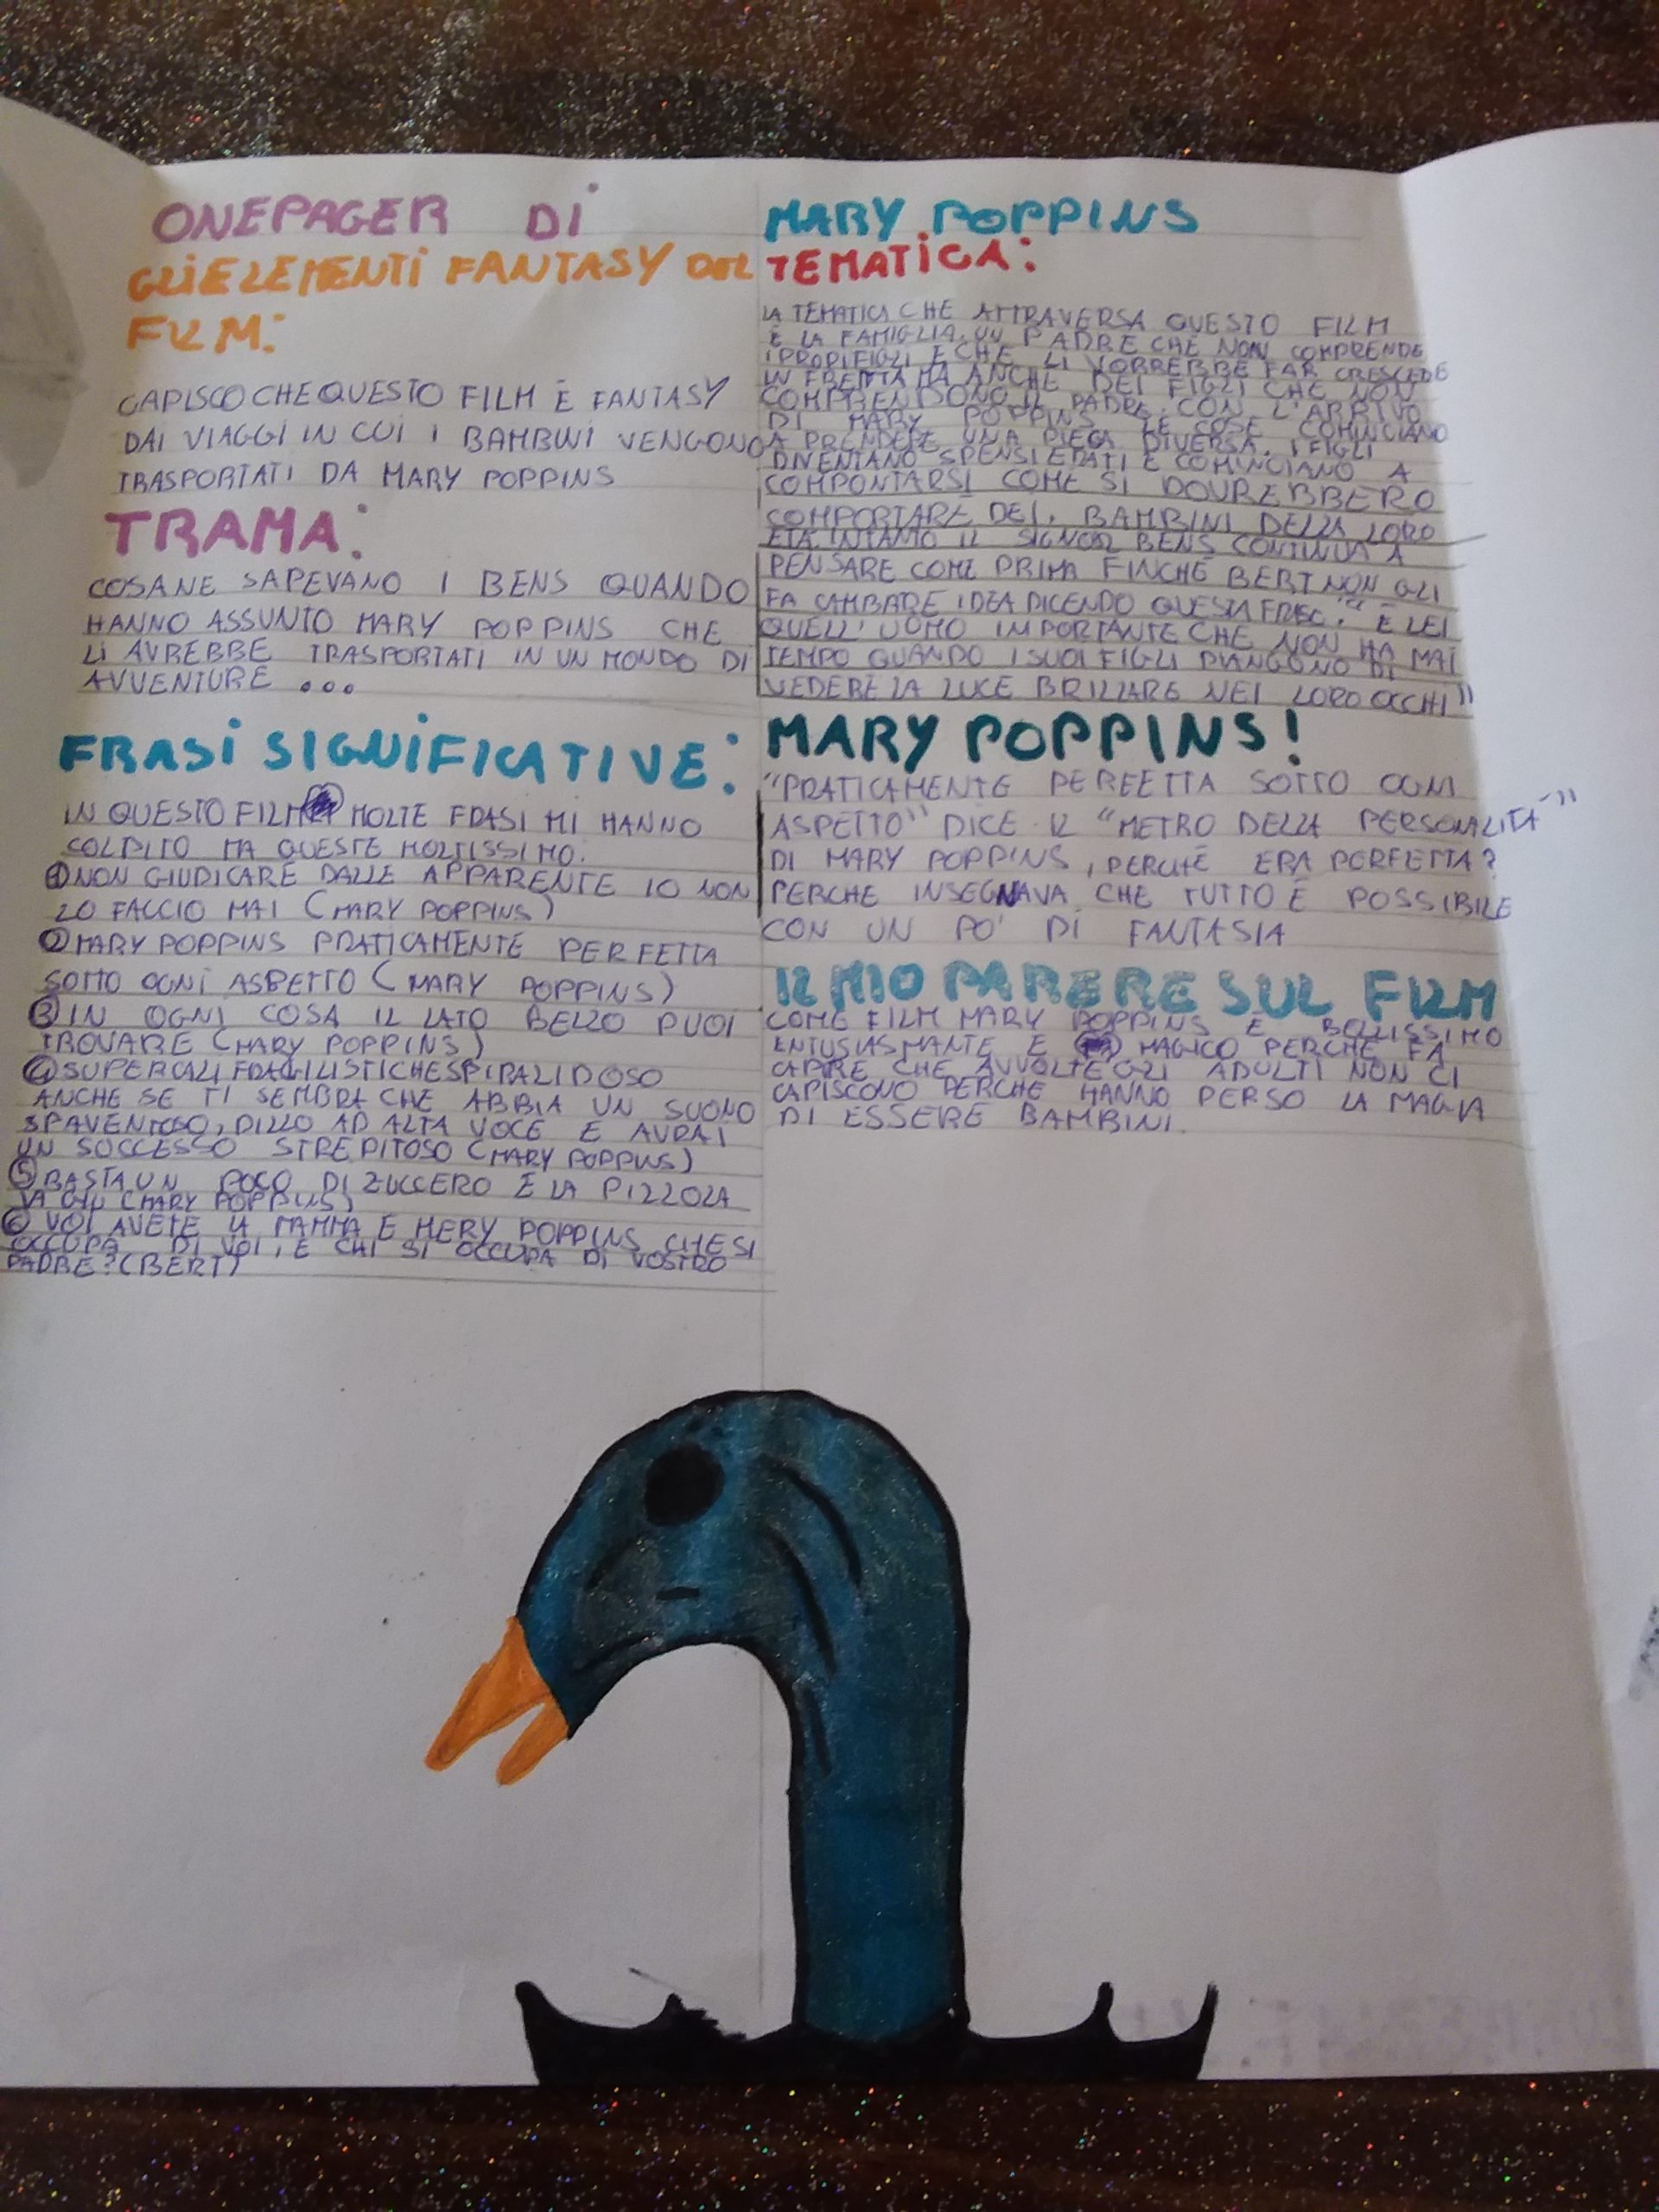 ONEPAGER DI MARY POPPINS
GLI ELEMENTI FANTASY DEL
FILM:
CAPISCO CHE QUESTO FILM È FANTASY
DAI VIAGGI IN CUI I BAMBINI VENGONO
TRASPORTATI DA MARY POPPINS
TRAMA:
COSA NE SAPEVANO I BENS QUANDO
HANNO ASSUNTO MARY POPPINS CHE
LI AVREBBE TRASPORTATI IN UN MONDO DI
AVVENTURE ...
FRASI SIGNIFICATIVE:
IN QUESTO FILM MOLTE FRASI MI HANNO
COLPITO MA QUESTE MOLTISSIMO.
① NON GIUDICARE DALLE APPARENTE IO NON
LO FACCIO MAI (MARY POPPINS)
② MARY POPPINS PRATICAMENTE PERFETTA
SOTTO OGNI ASPETTO (MARY POPPINS)
③ IN OGNI COSA IL LATO BELLO PUOI
TROVARE (MARY POPPINS)
④ SUPERCALIFRAGILISTICHESPIRALIDOSO
ANCHE SE TI SEMBRA CHE ABBIA UN SUONO
SPAVENTOSO, DILLO AD ALTA VOCE E AVRAI
UN SUCCESSO STREPITOSO (MARY POPPINS)
⑤ BASTA UN POCO DI ZUCCERO E LA PILLOLA
VA GIÙ (MARY POPPINS)
⑥ VOI AVETE LA MAMMA E MERY POPPINS CHE SI
OCCUPA DI VOI, E CHI SI OCCUPA DI VOSTRO
PADRE? (BERT)
TEMATICA:
LA TEMATICA CHE ATTRAVERSA QUESTO FILM
È LA FAMIGLIA. UN PADRE CHE NON COMPRENDE
I PROPI FIGLI E CHE LI VORREBBE FAR CRESCERE
IN FRETTA MA ANCHE DEI FIGLI CHE NON
COMPRENDONO IL PADRE. CON L'ARRIVO
DI MARY POPPINS LE COSE COMINCIANO
A PRENDERE UNA PIEGA DIVERSA. I FIGLI
DIVENTANO SPENSIERATI E COMINCIANO A
COMPONTARSI COME SI DOVREBBERO
COMPORTARE DEI BAMBINI DELLA LORO
ETÀ. INTANTO IL SIGNOR BENS CONTINUA A
PENSARE COME PRIMA FINCHÈ BERT NON GLI
FA CAMBARE IDEA DICENDO QUESTA FRASE: "È LEI
QUELL'UOMO IMPORTANTE CHE NON HA MAI
TEMPO QUANDO I SUOI FIGLI PIANGONO DI
VEDERE LA LUCE BRILLARE NEI LORO OCCHI"
MARY POPPINS!
"PRATICAMENTE PERFETTA SOTTO OGNI
ASPETTO" DICE IL "METRO DELLA PERSONALITÀ"
DI MARY POPPINS, PERCHÈ ERA PERFETTA?
PERCHE INSEGNAVA CHE TUTTO È POSSIBILE
CON UN PO' DI FANTASIA
IL MIO PARERE SUL FILM
COME FILM MARY POPPINS È BELLISSIMO
ENTUSIASMANTE E MAGICO PERCHÈ FA
CAPIRE CHE AVVOLTE GLI ADULTI NON CI
CAPISCONO PERCHE HANNO PERSO LA MAGIA
DI ESSERE BAMBINI.